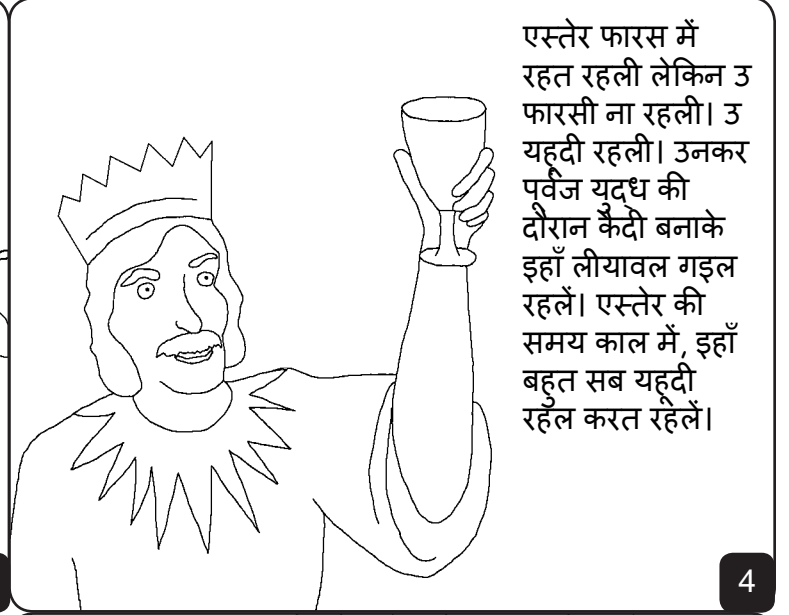 एस्तेर फारस में
रहत रहली लेकिन उ
फारसी ना रहली। उ
यहूदी रहली। उनकर
पूर्वज युद्ध की
दौरान कैदी बनाके
इहाँ लीयावल गइल
रहलें। एस्तेर की
समय काल में, इहाँ
बहुत सब यहूदी
रहल करत रहलें।
4